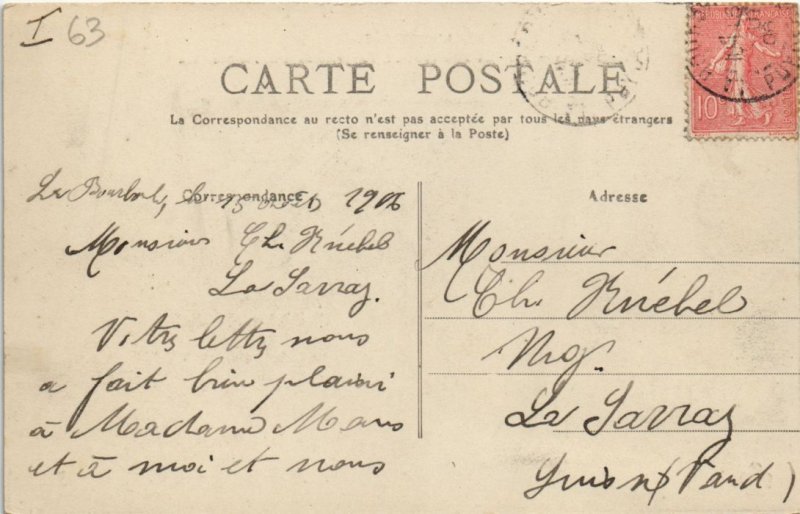 I 63
CARTE POSTALE
La Correspondance au recto n'est pas acceptée par tous les pays étrangers
(Se renseigner à la Poste)
RÉPUBLIQUE FRANÇAISE
10
Correspondance
La Bourboule, le 13 août 1906
Monsieur Ch. Knébel
La Sarraz.
Votre lettre nous
a fait bien plaisir
à Madame
et à moi et nous
Adresse
Monsieur
Ch. Knébel
Nég.
La Sarraz
Suisse (Vaud)